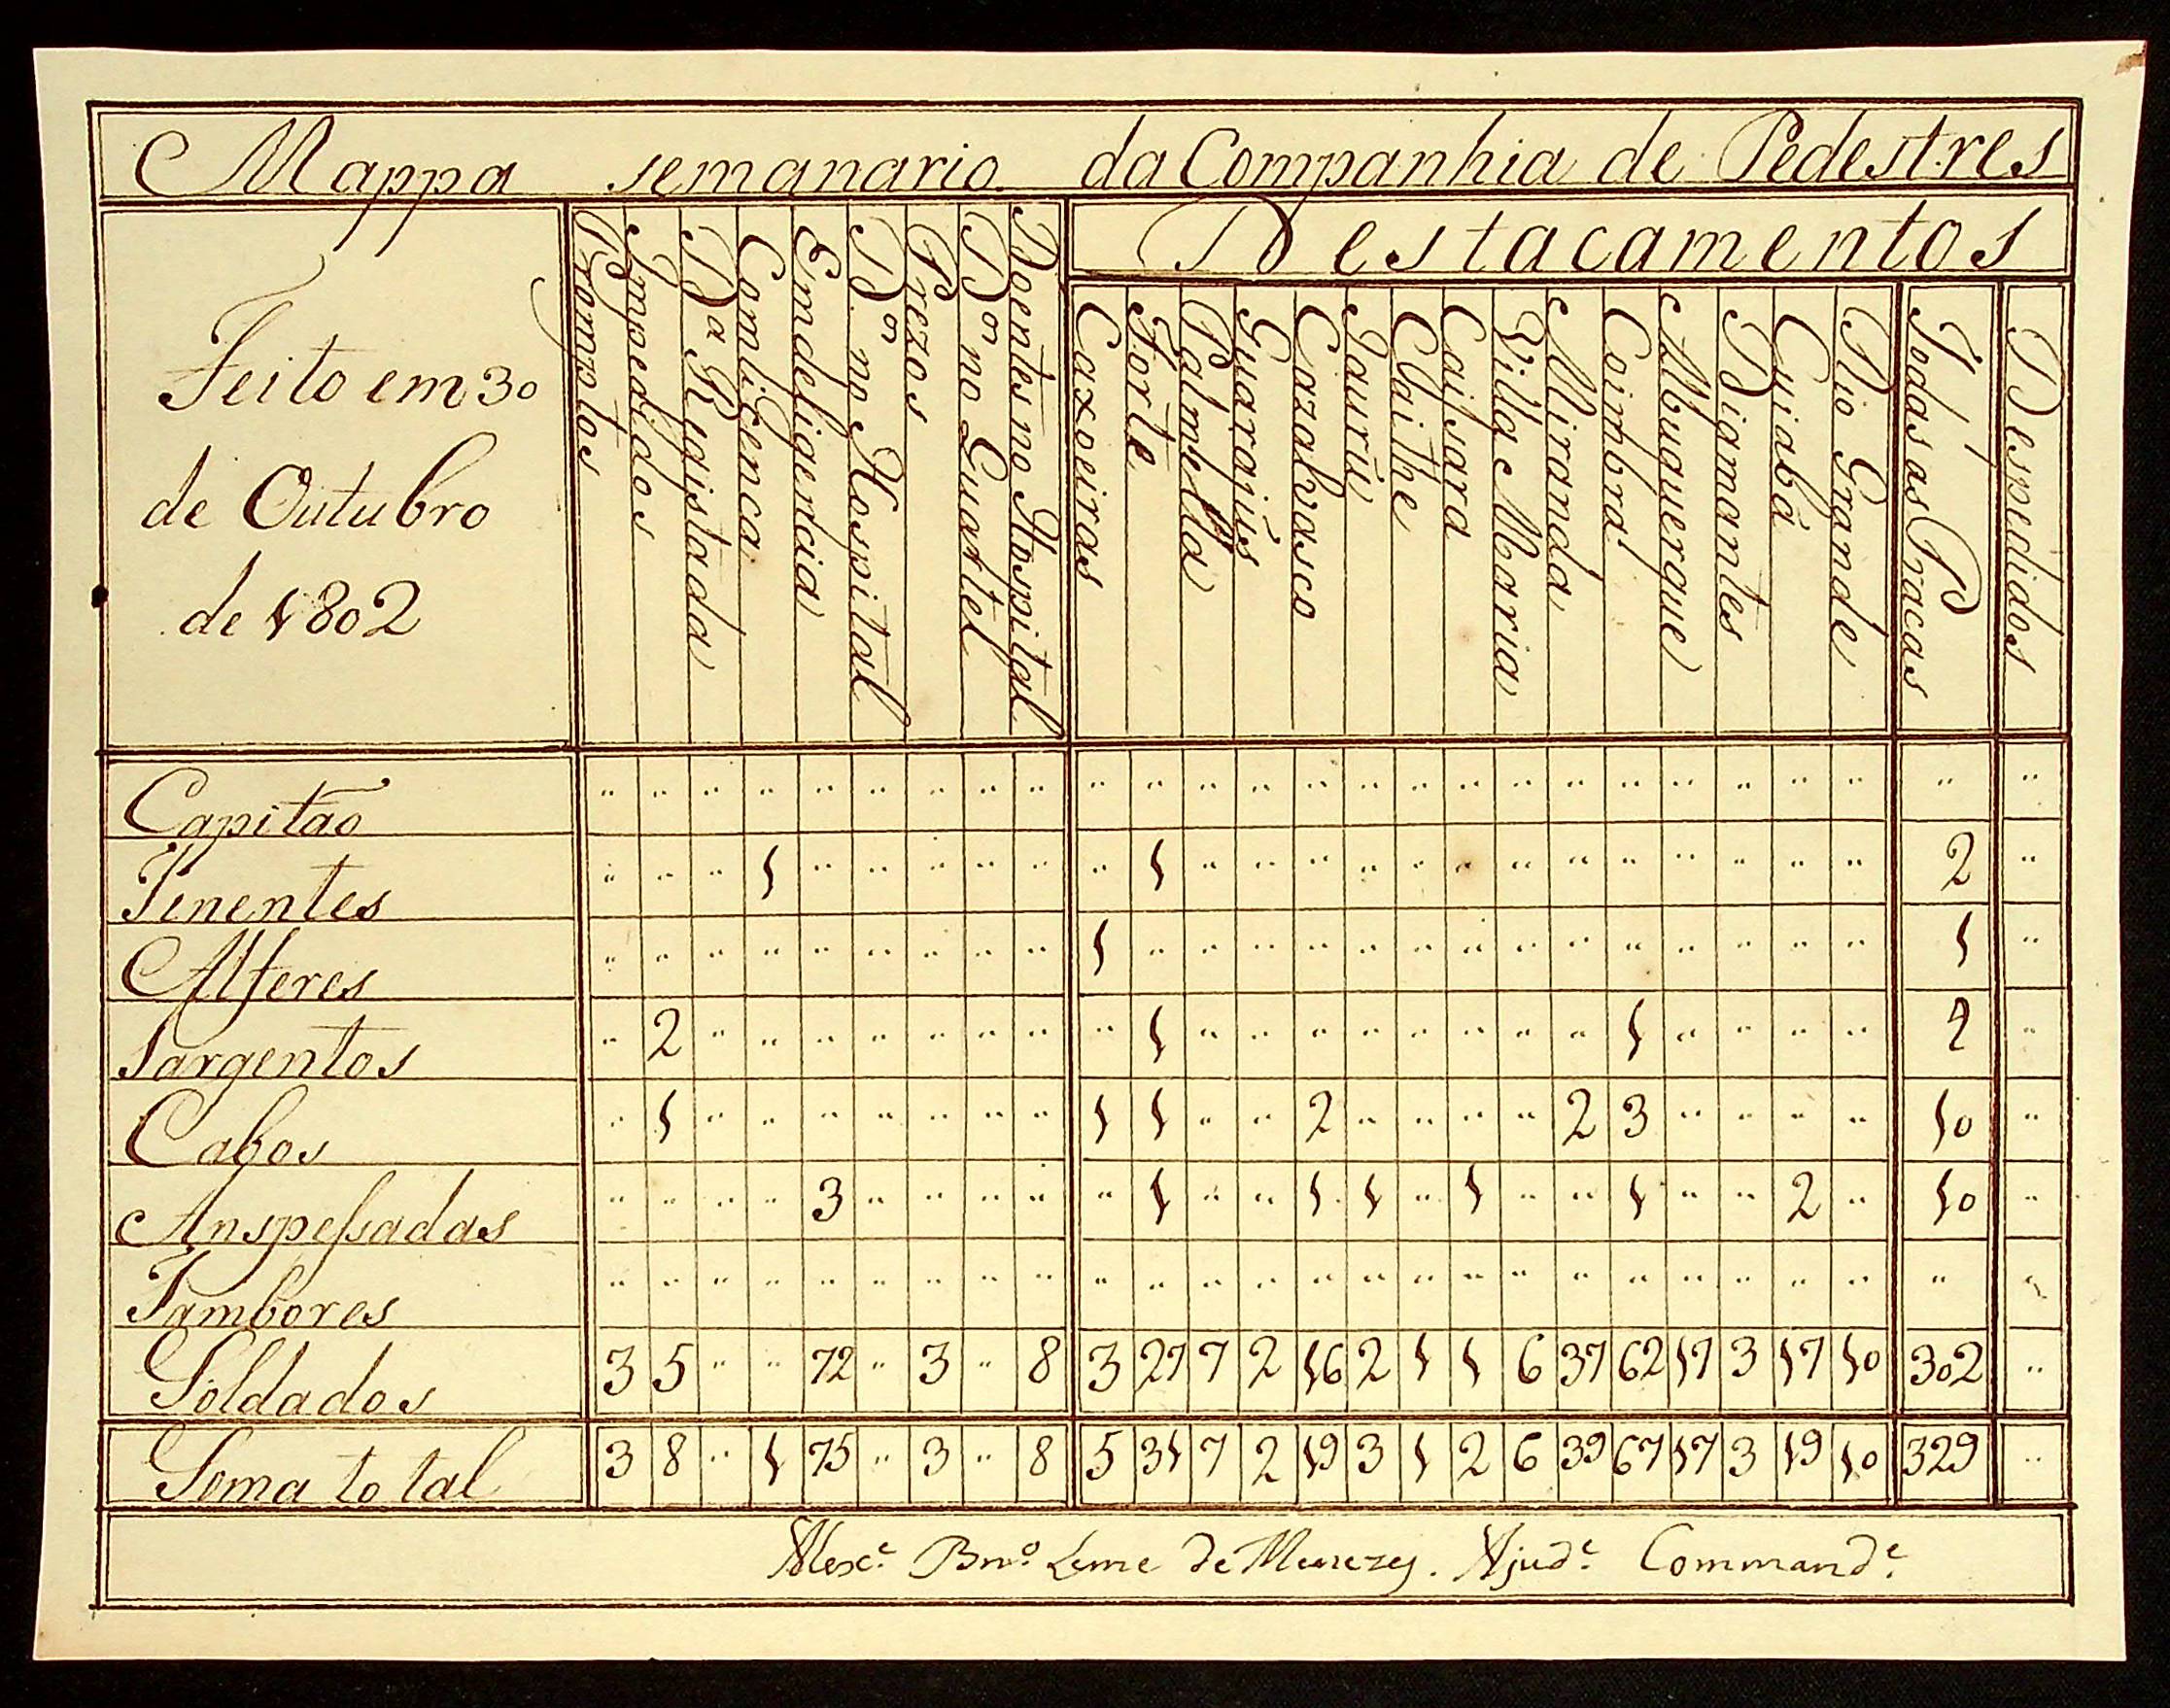 Mappa semanario da Companhia de Pedestres
Feito em 30
de Outubro
de 1802
Promptos
Impedidos
Dª Rugistada
Com licença
Em deligencia
Dºˢ no Hospital
Prezos
Dºˢ no Quartel
Doentes no Hospital
Destacamentos
Caxoeiras
Forte
Palmella
Guarajús
Cazalvasco
Jaurú
Caissara
Villa Maria
Miranda
Coimbra
Albuquerque
Diamantes
Cuiabá
Rio Grande
Todas as Praças
Despedidos
Capitão " " " " " " " " " " " " " " " " " " " " " " " " " "
Tenentes " " " 1 " " " " " " 1 " " " " " " " " " " " " " 2 "
Alferes " " " " " " " " " 1 " " " " " " " " " " " " " " 1 "
Sargentos " 2 " " " " " " " " 1 " " " " " " " " 1 " " " " 2 "
Cabos " 1 " " " " " " " 1 1 " " 2 " " " " 2 3 " " " " 10 "
Anspessadas " " " " 3 " " " " " 1 " " 1 1 " 1 " " 1 " " 2 " 10 "
Tambores " " " " " " " " " " " " " " " " " " " " " " " " " "
Soldados 3 5 " " 72 " 3 " 8 3 27 7 2 16 2 1 1 6 37 62 17 3 17 10 302 "
Soma total 3 8 " 1 75 " 3 " 8 5 31 7 2 19 3 1 2 6 39 67 17 3 19 10 329 "
Alexᵉ Bnº Leme de Menezes. Ajudᵉ Commandᵉ